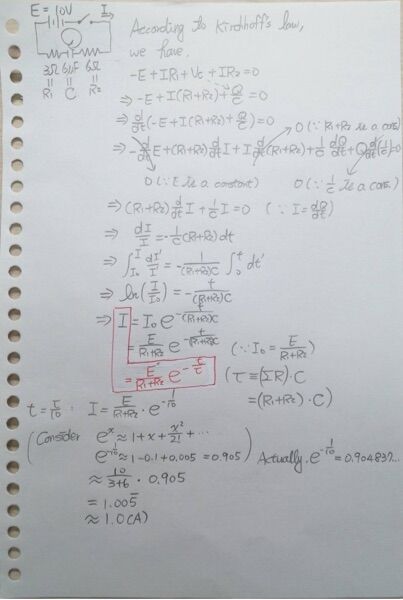 E = 10V
I
3Ω 6μF 6Ω
R1 C R2
According to Kirchhoff's law,
we have,
-E + IR1 + Vc + IR2 = 0
⇒ -E + I(R1+R2) + Q/C = 0
⇒ d/dt(-E + I(R1+R2) + Q/C) = 0
0 (∵ R1+R2 is a const.)
⇒ -d/dt E + (R1+R2) d/dt I + I d/dt (R1+R2) + 1/C dQ/dt + Q d/dt(1/C) = 0
0 (∵ E is a constant) 0 (∵ 1/C is a const.)
⇒ (R1+R2) d/dt I + 1/C I = 0 (∵ I = dQ/dt)
⇒ dI/I = -1/C(R1+R2) dt
⇒ ∫_{I0}^{I} dI'/I' = -1/((R1+R2)C) ∫_0^t dt'
⇒ ln(I/I0) = -t/((R1+R2)C)
⇒ I = I0 e^{-t/((R1+R2)C)}
= E/(R1+R2) e^{-t/((R1+R2)C)} (∵ I0 = E/(R1+R2))
= E/(R1+R2) e^{-t/τ} (τ ≡ (ΣR)·C
= (R1+R2)·C)
t = τ/10 : I = E/(R1+R2) · e^{-1/10}
(Consider e^x ≈ 1 + x + x²/2! + ...
e^{-1/10} ≈ 1 - 0.1 + 0.005 = 0.905) Actually, e^{-1/10} = 0.904837...
≈ 10/(3+6) · 0.905
= 1.005̄
≈ 1.0 (A)